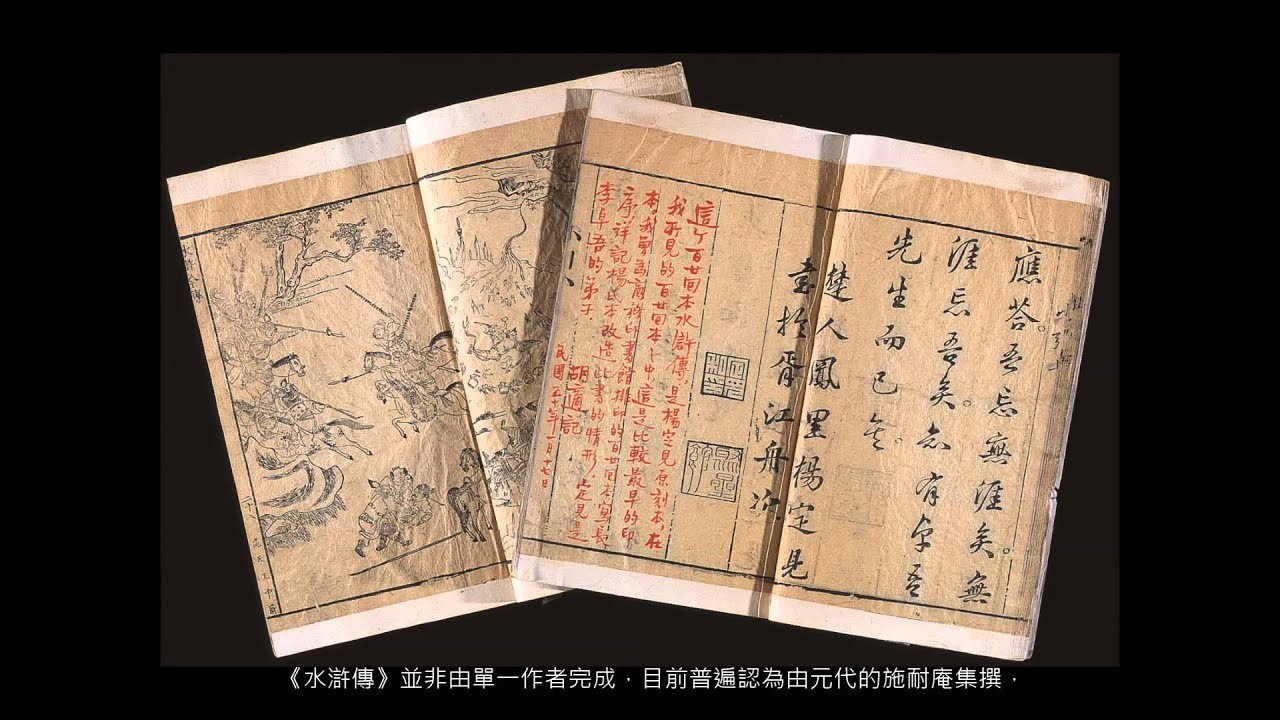 應荅。吾忘無涯矣。無
涯忘吾矣。亦有卓吾
先生而已矣。
楚人鳳里楊定見
書於胥江舟次
這个百廿回本水滸傳，是楊定見原刻本，在
我所見的百廿回本之中，這是比較最早的印
本。我曾爲商務印書館排印的百廿回本寫長
序，詳記楊氏本改造此書的情形。定見是
李卓吾的弟子
胡適記
民國五十年一月十七日
《水滸傳》並非由單一作者完成，目前普遍認為由元代的施耐庵集撰，